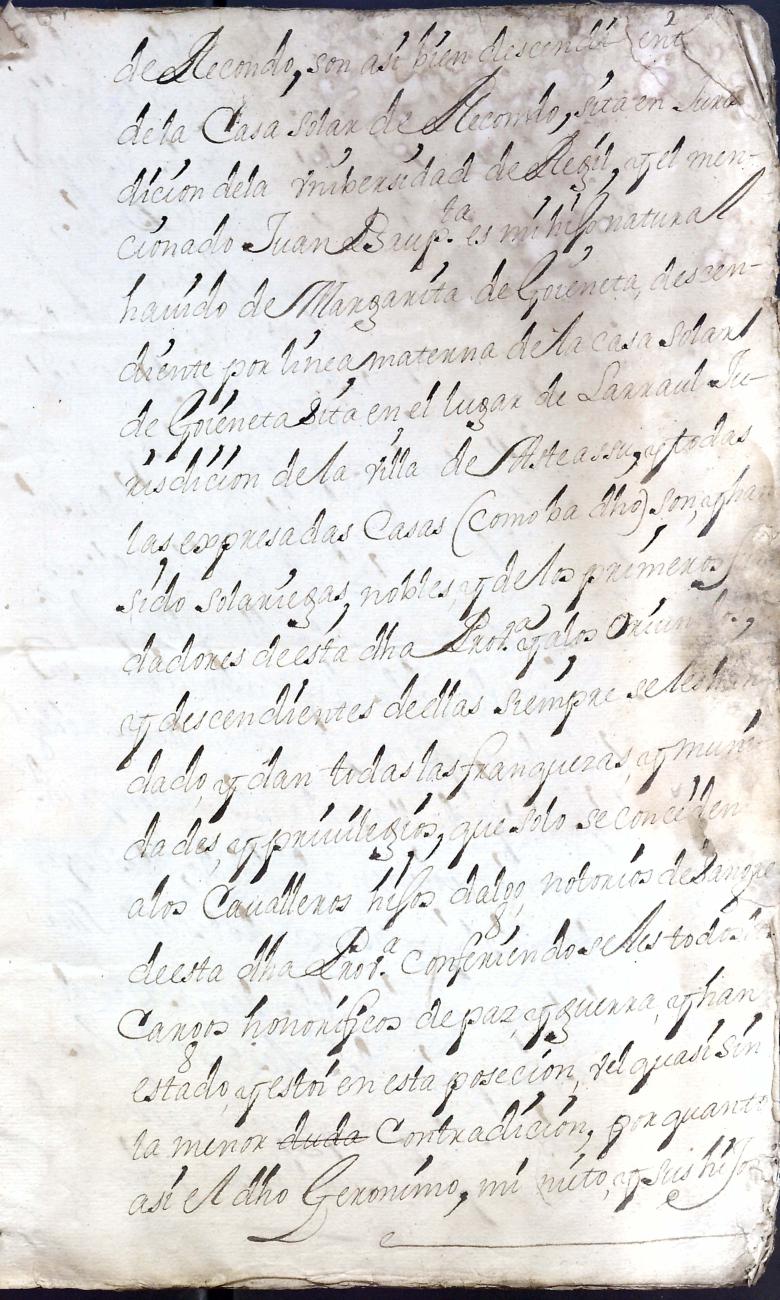 de Recondo, son asi bien descendient
de la Casa solar de Recondo, sita en Juris
dicion dela vnibersidad de Regil, y el men-
cionado Juan Baup.ta es mi hijo natural
hauido de Margarita de Goieneta, descen-
diente por linea materna de la casa solar
de Goieneta sita en el lugar de Larraul Ju-
risdicion de la villa de Asteassu, y todas
las expresadas Casas (como ba dho) son, y han
sido solariegas, nobles, y de los primeros
dadores de esta dha Prov.a y alos Oriundos,
y descendientes de ellas siempre se les han
dado, y dan todas las franquezas, y muni
dades, y priuilegios, que solo se conceden
alos Caualleros hijos dalgo, notorios de Sangre
de esta dha Prov.a Confiriendoseles todos los
Cargos honorificos de paz, y guerra, y han
estado, y estoi en esta poseçion, vel quasi sin
la menor duda Contradicion, por quanto
asi el dho Geronimo, mi nieto, y sus hijos